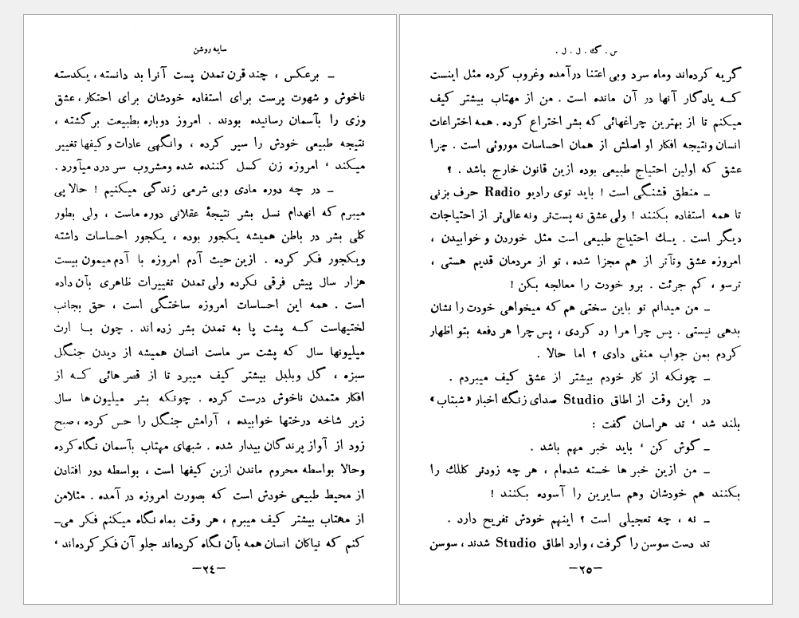 سایه روشن
ــ برعکس ، چند قرن تمدن پست آنرا بد دانسته ، یکدسته
ناخوش و شهوت پرست برای استفاده خودشان برای احتکار ، عشق
وزی را بآسمان رسانیده بودند . امروز دوباره بطبیعت برگشته ،
نتیجه طبیعی خودش را سیر کرده ، وانگهی عادات و کیفها تغییر
میکند ، امروزه زن کسل کننده شده ومشروب سر درد میآورد .
ــ در چه دوره مادی وبی شرمی زندگی میکنیم ! حالا پی
میبرم که انهدام نسل بشر نتیجهٔ عقلانی دوره ماست ، ولی بطور
کلی بشر در باطن همیشه یکجور بوده ، یکجور احساسات داشته
ویکجور فکر کرده . ازین حیث آدم امروزه با آدم میمون بیست
هزار سال پیش فرقی نکرده ولی تمدن تغییرات ظاهری بآن داده
است . همه این احساسات امروزه ساختگی است ، حق بجانب
لختیهاست کـه پشت پا به تمدن بشر زده اند . چون بـا ارث
میلیونها سال که پشت سر ماست انسان همیشه از دیدن جنگل
سبزه ، گل وبلبل بیشتر کیف میبرد تا از قصر هائی کـه از
افکار متمدن ناخوش درست کرده . چونکه بشر میلیون ها سال
زیر شاخه درختها خوابیده ، آرامش جنگل را حس کرده ، صبح
زود از آواز پرندگان بیدار شده . شبهای مهتاب بآسمان نگاه کرده
وحالا بواسطه محروم ماندن ازین کیفها است ، بواسطه دور افتادن
از محیط طبیعی خودش است که بصورت امروزه در آمده . مثلامن
از مهتاب بیشتر کیف میبرم ، هر وقت بماه نگاه میکنم فکر می‌ـ
کنم که نیاکان انسان همه بآن نگاه کرده‌اند جلو آن فکر کرده‌اند ،
ــ ۲٤ ــ
س . گ . ل . ل .
گریه کرده‌اند وماه سرد وبی اعتنا درآمده وغروب کرده مثل اینست
کـه یادگار آنها در آن مانده است . من از مهتاب بیشتر کیف
میکنم تا از بهترین چراغهائی که بشر اختراع کرده . همه اختراعات
انسان ونتیجه افکار او اصلش از همان احساسات موروثی است . چرا
عشق که اولین احتیاج طبیعی بوده ازین قانون خارج باشد . ؟
ــ منطق قشنگی است ! باید توی رادیو Radio حرف بزنی
تا همه استفاده بکنند ! ولی عشق نه پست‌تر ونه عالی‌تر از احتیاجات
دیگر است . یـك احتیاج طبیعی است مثل خوردن و خوابیدن ،
امروزه عشق وتآتر از هم مجزا شده ، تو از مردمان قدیم هستی ،
ترسو ، کم جرئت . برو خودت را معالجه بکن !
ــ من میدانم تو باین سختی هم که میخواهی خودت را نشان
بدهی نیستی . پس چرا مرا رد کردی ، پس چرا هر دفعه بتو اظهار
کردم بمن جواب منفی دادی ؟ اما حالا .
ــ چونکه از کار خودم بیشتر از عشق کیف میبردم .
در این وقت از اطاق Studio صدای زنگ اخبار «شبتاب»
بلند شد ، تد هراسان گفت :
ــ گوش کن ، باید خبر مهم باشد .
ــ من ازین خبر ها خسته شده‌ام ، هر چه زودتر کلك را
بکنند هم خودشان وهم سایرین را آسوده بکنند !
ــ نه ، چه تعجیلی است ؟ اینهم خودش تفریح دارد .
تد دست سوسن را گرفت ، وارد اطاق Studio شدند ، سوسن
ــ ۲٥ ــ